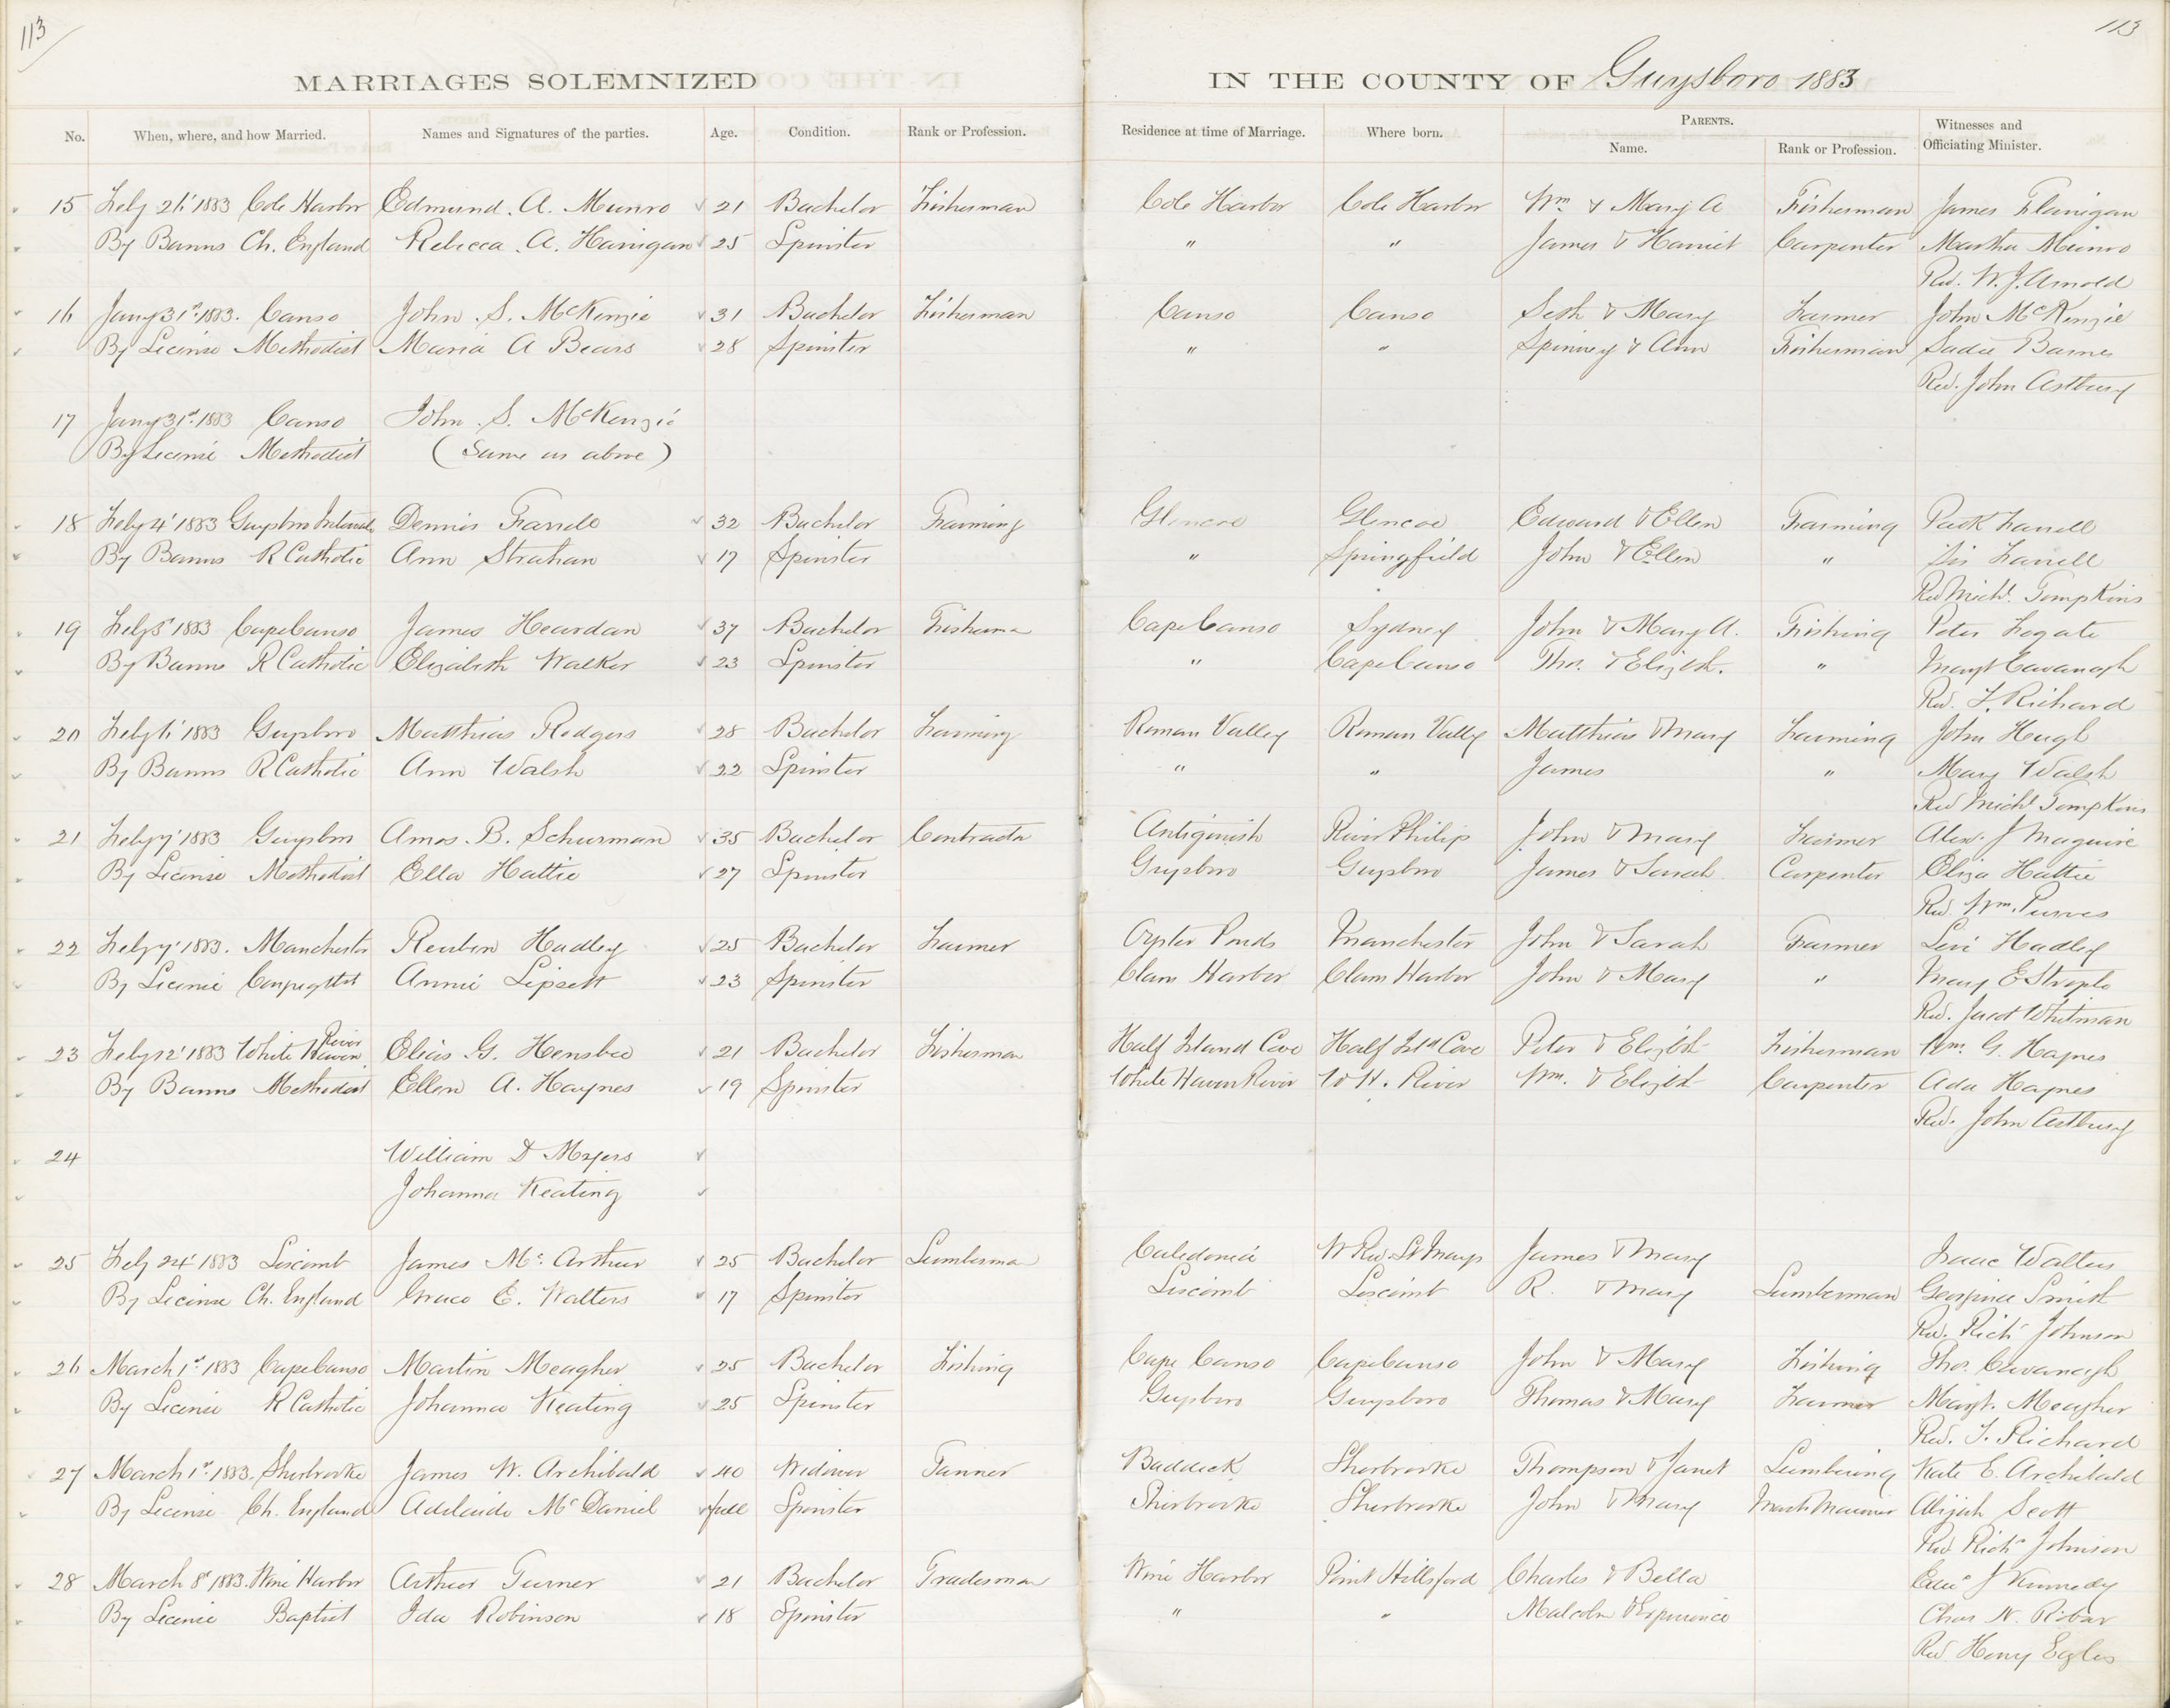 113
113
MARRIAGES SOLEMNIZED IN THE COUNTY OF Guysboro 1883
No. When, where, and how Married. Names and Signatures of the parties. Age. Condition. Rank or Profession. Residence at time of Marriage. Where born. PARENTS. Name. Rank or Profession. Witnesses and Officiating Minister.
15 Feby 1883 Cole Harbor Edmund. A. Munro 21 Bachelor Fisherman Cole Harbor Cole Harbor Wm & Mary A Fisherman James Flanigan
By Banns Ch. England Rebecca. A. Hanigan 25 Spinster " " James & Harriet Carpenter Martha Munro
Rev. W. J. Arnold
16 Jany 31st 1883. Canso John. S. McKenzie 31 Bachelor Fisherman Canso Canso Seth & Mary Farmer John McKenzie
By License Methodist Maria A Bears 28 Spinster " " Spinney & Ann Fisherman Sadie Barnes
Rev. John Astbury
17 Jany 31st 1883 Canso John. S. McKenzie
By License Methodist (Same as above)
18 Feby 4' 1883 Guysbro Intervale Dennis Farrell 32 Bachelor Farming Glencoe Glencoe Edward & Ellen Farming Patk Farrell
By Banns R Catholic Ann Strahan 17 Spinster " Springfield John & Ellen " Farrell
Rev Michl. Tompkins
19 Feby 1883 Cape Canso James Heardan 37 Bachelor Fisherman Cape Canso Sydney John & Mary A. Fishing Peter Fogate
By Banns R Catholic Elizabeth Walker 23 Spinster " Cape Canso Thos. & Elizbh. " Margt Cavanagh
Rev. F. Richard
20 Feby 1883 Guysboro Matthias Rodgers 28 Bachelor Farming Roman Valley Roman Vally Matthias & Mary Farming John Heugh
By Banns R Catholic Ann Walsh 22 Spinster " " James " Mary Walsh
Rev Michl Tompkins
21 Feby 7' 1883 Guysbro Amos. B. Schurman 35 Bachelor Contractor Antigonish River Philip John & Mary Farmer Alex. J Maguire
By License Methodist Ella Hattie 27 Spinster Guysboro Guysbro James & Sarah Carpenter Eliza Hattie
Rev Wm. Purves
22 Feby 7' 1883. Manchester Reuben Hadley 25 Bachelor Farmer Oyster Ponds Manchester John & Sarah Farmer Levi Hadley
By License Annie Lipsett 23 Spinster Clam Harbor Clam Harbor John & Mary " Mary E Strople
Rev. Jacob Whitman
23 Feby 12' 1883 White Haven River Elias. G. Hensbee 21 Bachelor Fisherman Half Island Cove Half Isld Cove Peter & Elizbh Fisherman Wm. G. Haynes
By Banns Methodist Ellen A. Haynes 19 Spinster White Haven River W H. River Wm. & Elizbh Carpenter Ada Haynes
Rev. John Astbury
24 William D Myers
Johanna Keating
25 Feby 24' 1883 Liscomb James Mc Arthur 25 Bachelor Lumberman Caledonia W Riv. St Marys James & Mary Isaac Walters
By License Ch. England Grace E. Walters 17 Spinster Liscomb Liscomb R. & Mary Lumberman Georgina Smith
Rev. Richd Johnson
26 March 1st 1883 Cape Canso Martin Meagher 25 Bachelor Fishing Cape Canso Cape Canso John & Mary Fishing Thos. Cavanagh
By License R Catholic Johanna Keating 25 Spinster Guysboro Guysboro Thomas & Mary Farmer Margt. Meagher
Rev. F. Richard
27 March 1st 1883. Sherbrooke James W. Archibald 40 Widower Tanner Baddeck Sherbrooke Thompson & Janet Lumbering Kate E. Archibald
By License Ch. England Adelaide McDaniel full Spinster Sherbrooke Sherbrooke John & Mary Mast Mariner Abijah Scott
Rev Richd Johnson
28 March 8' 1883. Wine Harbor Arthur Turner 21 Bachelor Tradesman Wine Harbor Point Hillsford Charles & Bella J Kennedy
By License Baptist Ida Robinson 18 Spinster " " Malcolm & Experience Chas N. Robar
Rev Henry Eagles